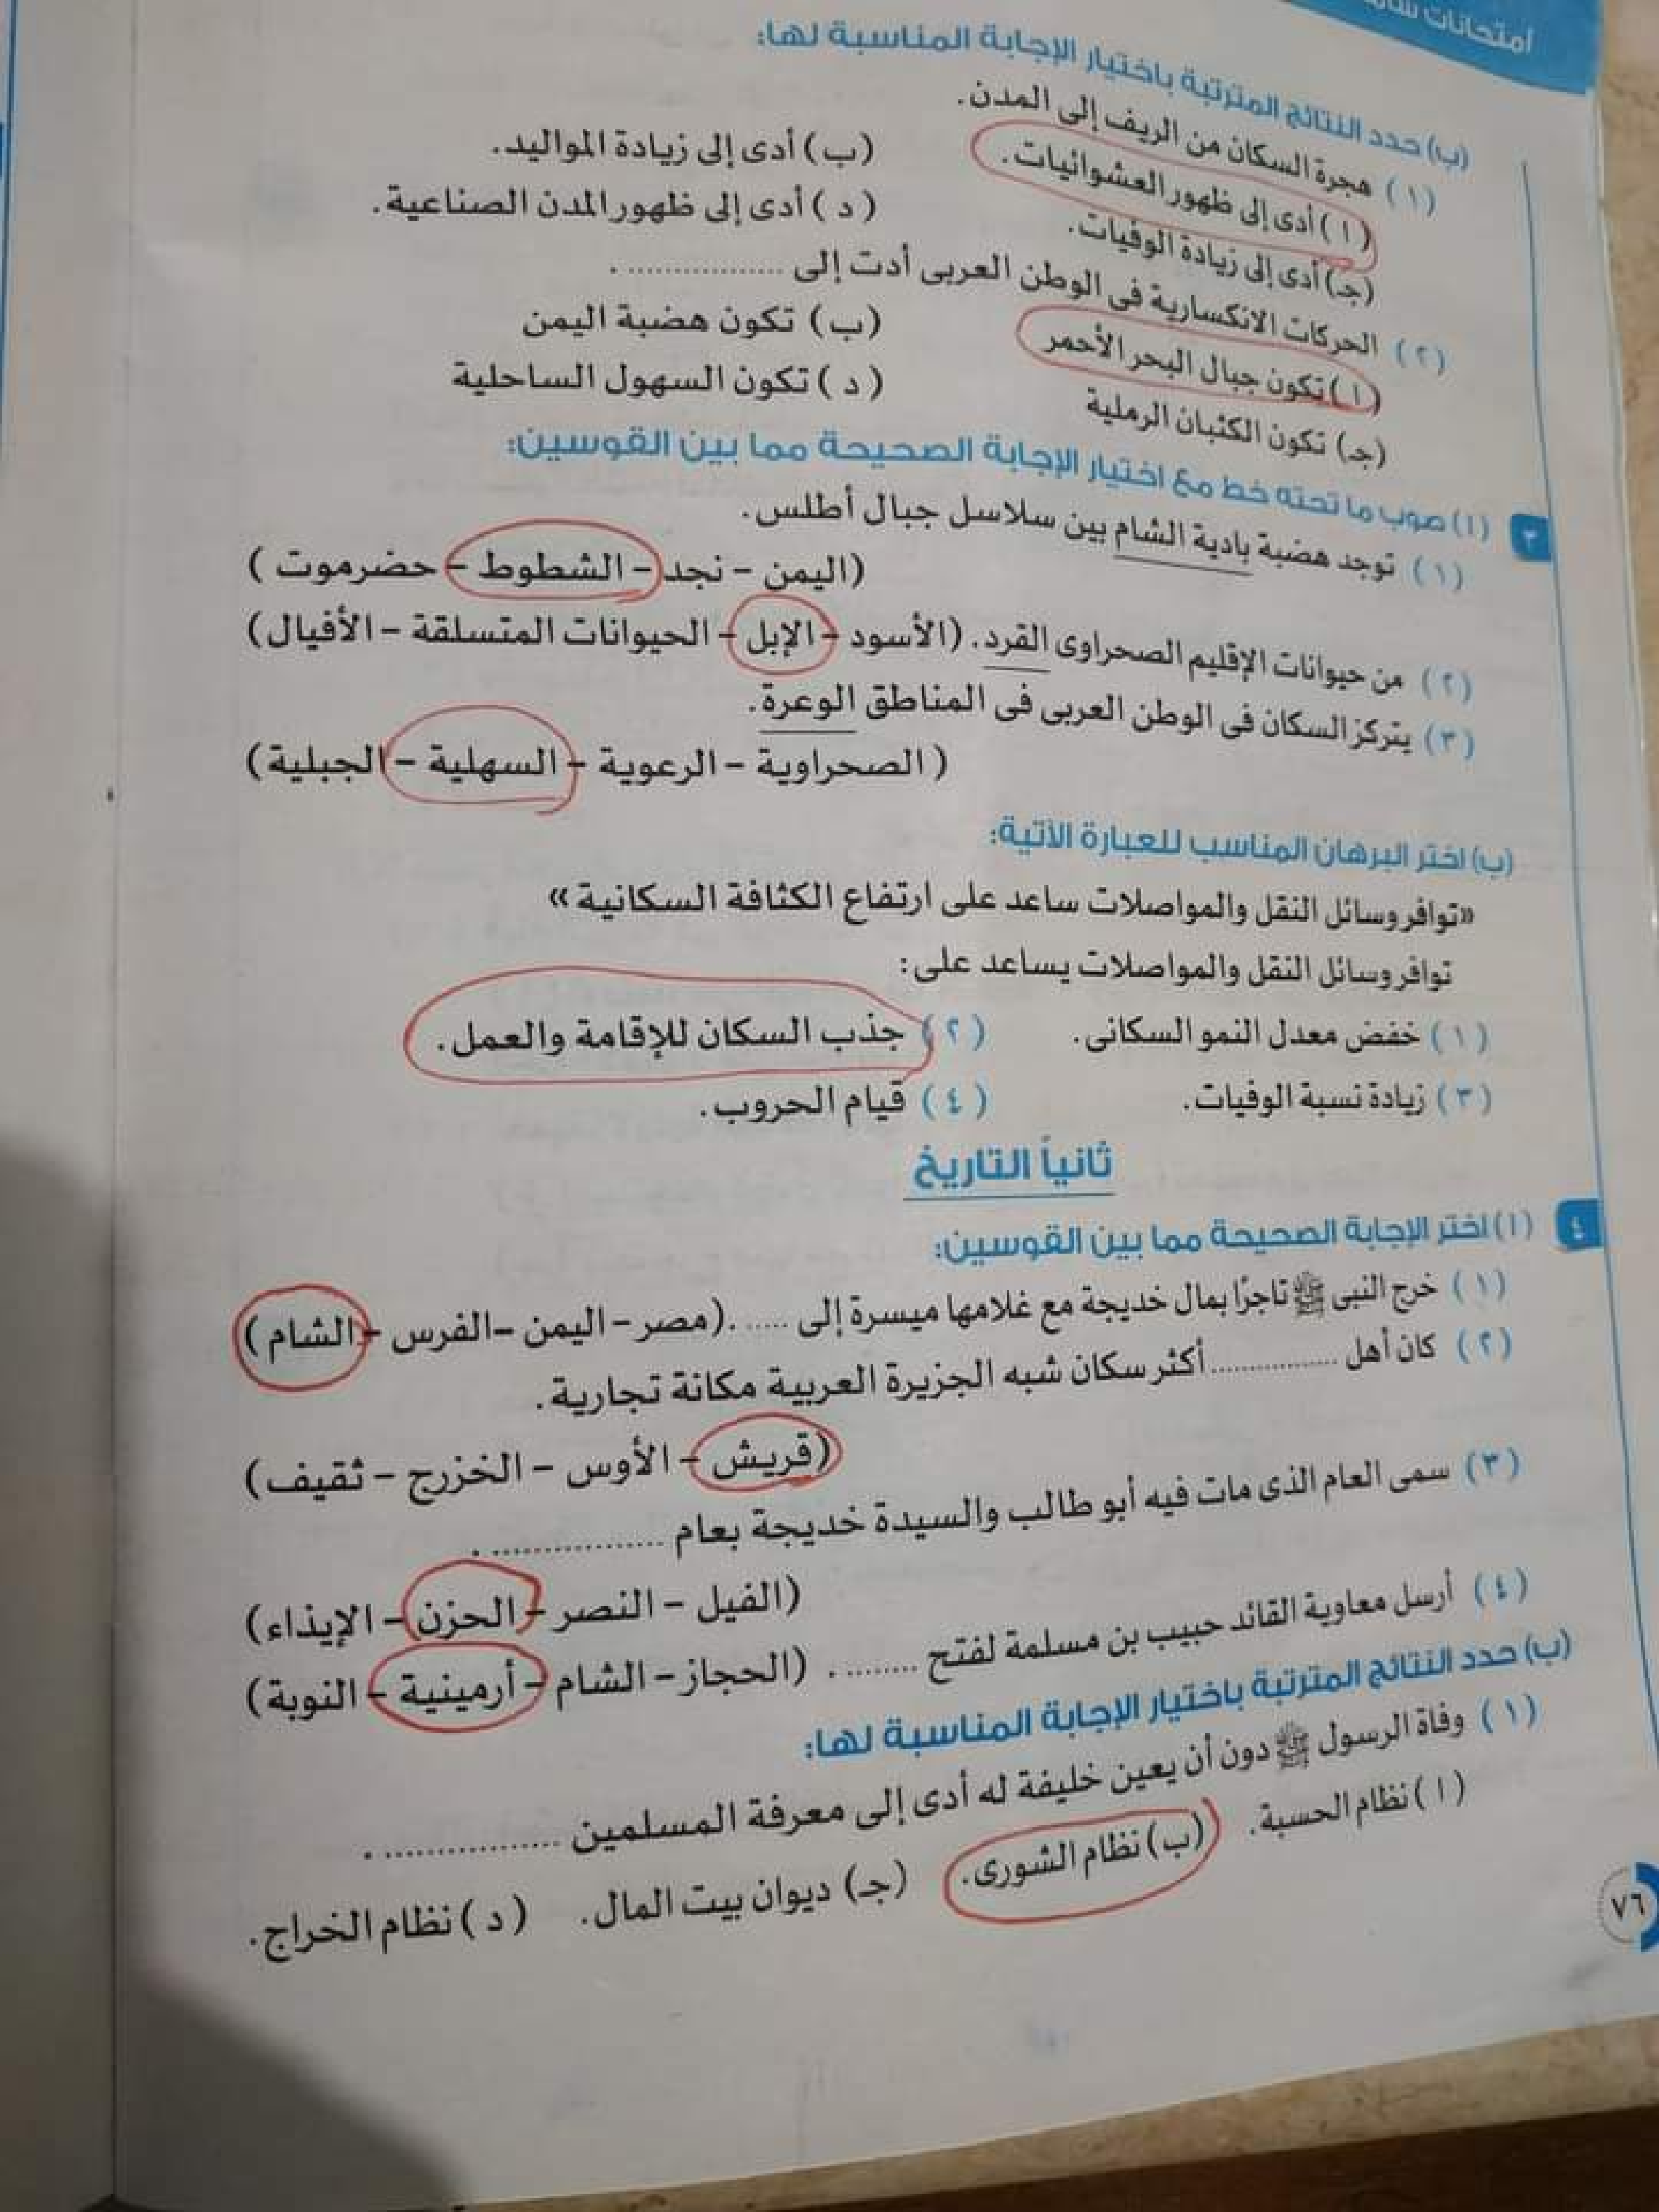 امتحانات
(ب) حدد النتائج المترتبة باختيار الإجابة المناسبة لها:
(١) هجرة السكان من الريف إلى المدن.
(ا) أدى إلى ظهور العشوائيات. (ب) أدى إلى زيادة المواليد.
(جـ) أدى إلى زيادة الوفيات. (د) أدى إلى ظهور المدن الصناعية.
(٢) الحركات الانكسارية فى الوطن العربى أدت إلى ................ .
(ا) تكون جبال البحر الأحمر (ب) تكون هضبة اليمن
(جـ) تكون الكثبان الرملية (د) تكون السهول الساحلية
٣ (ا) صوب ما تحته خط مع اختيار الإجابة الصحيحة مما بين القوسين:
(١) توجد هضبة بادية الشام بين سلاسل جبال أطلس.
(اليمن - نجد - الشطوط - حضرموت)
(٢) من حيوانات الإقليم الصحراوى القرد. (الأسود - الإبل - الحيوانات المتسلقة - الأفيال)
(٣) يتركز السكان فى الوطن العربى فى المناطق الوعرة.
(الصحراوية - الرعوية - السهلية - الجبلية)
(ب) اختر البرهان المناسب للعبارة الآتية:
«توافر وسائل النقل والمواصلات ساعد على ارتفاع الكثافة السكانية»
توافر وسائل النقل والمواصلات يساعد على:
(١) خفض معدل النمو السكانى. (٢) جذب السكان للإقامة والعمل.
(٣) زيادة نسبة الوفيات. (٤) قيام الحروب.
ثانياً التاريخ
٤ (ا) اختر الإجابة الصحيحة مما بين القوسين:
(١) خرج النبى ﷺ تاجرًا بمال خديجة مع غلامها ميسرة إلى ..... .(مصر - اليمن - الفرس - الشام)
(٢) كان أهل ................ أكثر سكان شبه الجزيرة العربية مكانة تجارية.
(قريش - الأوس - الخزرج - ثقيف)
(٣) سمى العام الذى مات فيه أبو طالب والسيدة خديجة بعام ................ .
(الفيل - النصر - الحزن - الإيذاء)
(٤) أرسل معاوية القائد حبيب بن مسلمة لفتح ........ . (الحجاز - الشام - أرمينية - النوبة)
(ب) حدد النتائج المترتبة باختيار الإجابة المناسبة لها:
(١) وفاة الرسول ﷺ دون أن يعين خليفة له أدى إلى معرفة المسلمين ................ .
(ا) نظام الحسبة. (ب) نظام الشورى. (جـ) ديوان بيت المال. (د) نظام الخراج.
٧٦